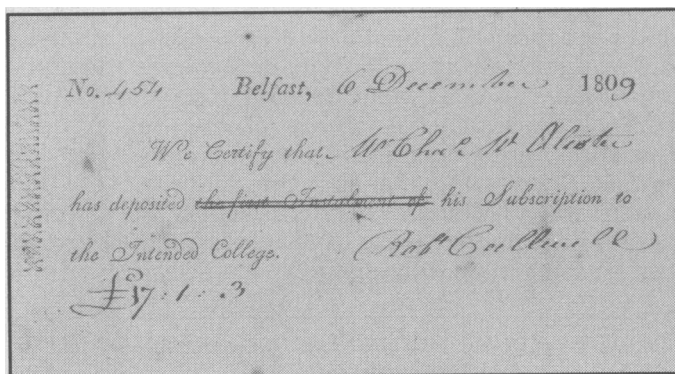 No. 454 Belfast, 6 December 1809
We Certify that Mr Chas Mc Alister
has deposited the first Instalment of his Subscription to
the Intended College. Robt Callwell
£17 : 1 : 3